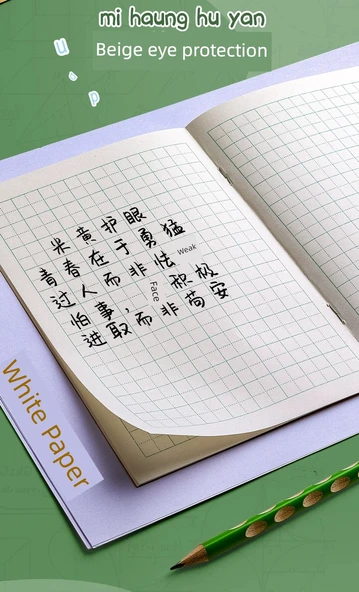 mi haung hu yan
Beige eye protection
U
P
米黄护眼
青春在于勇猛
过人而非怯 Weak
怕事，Face 积极
进取而非苟安
White Paper